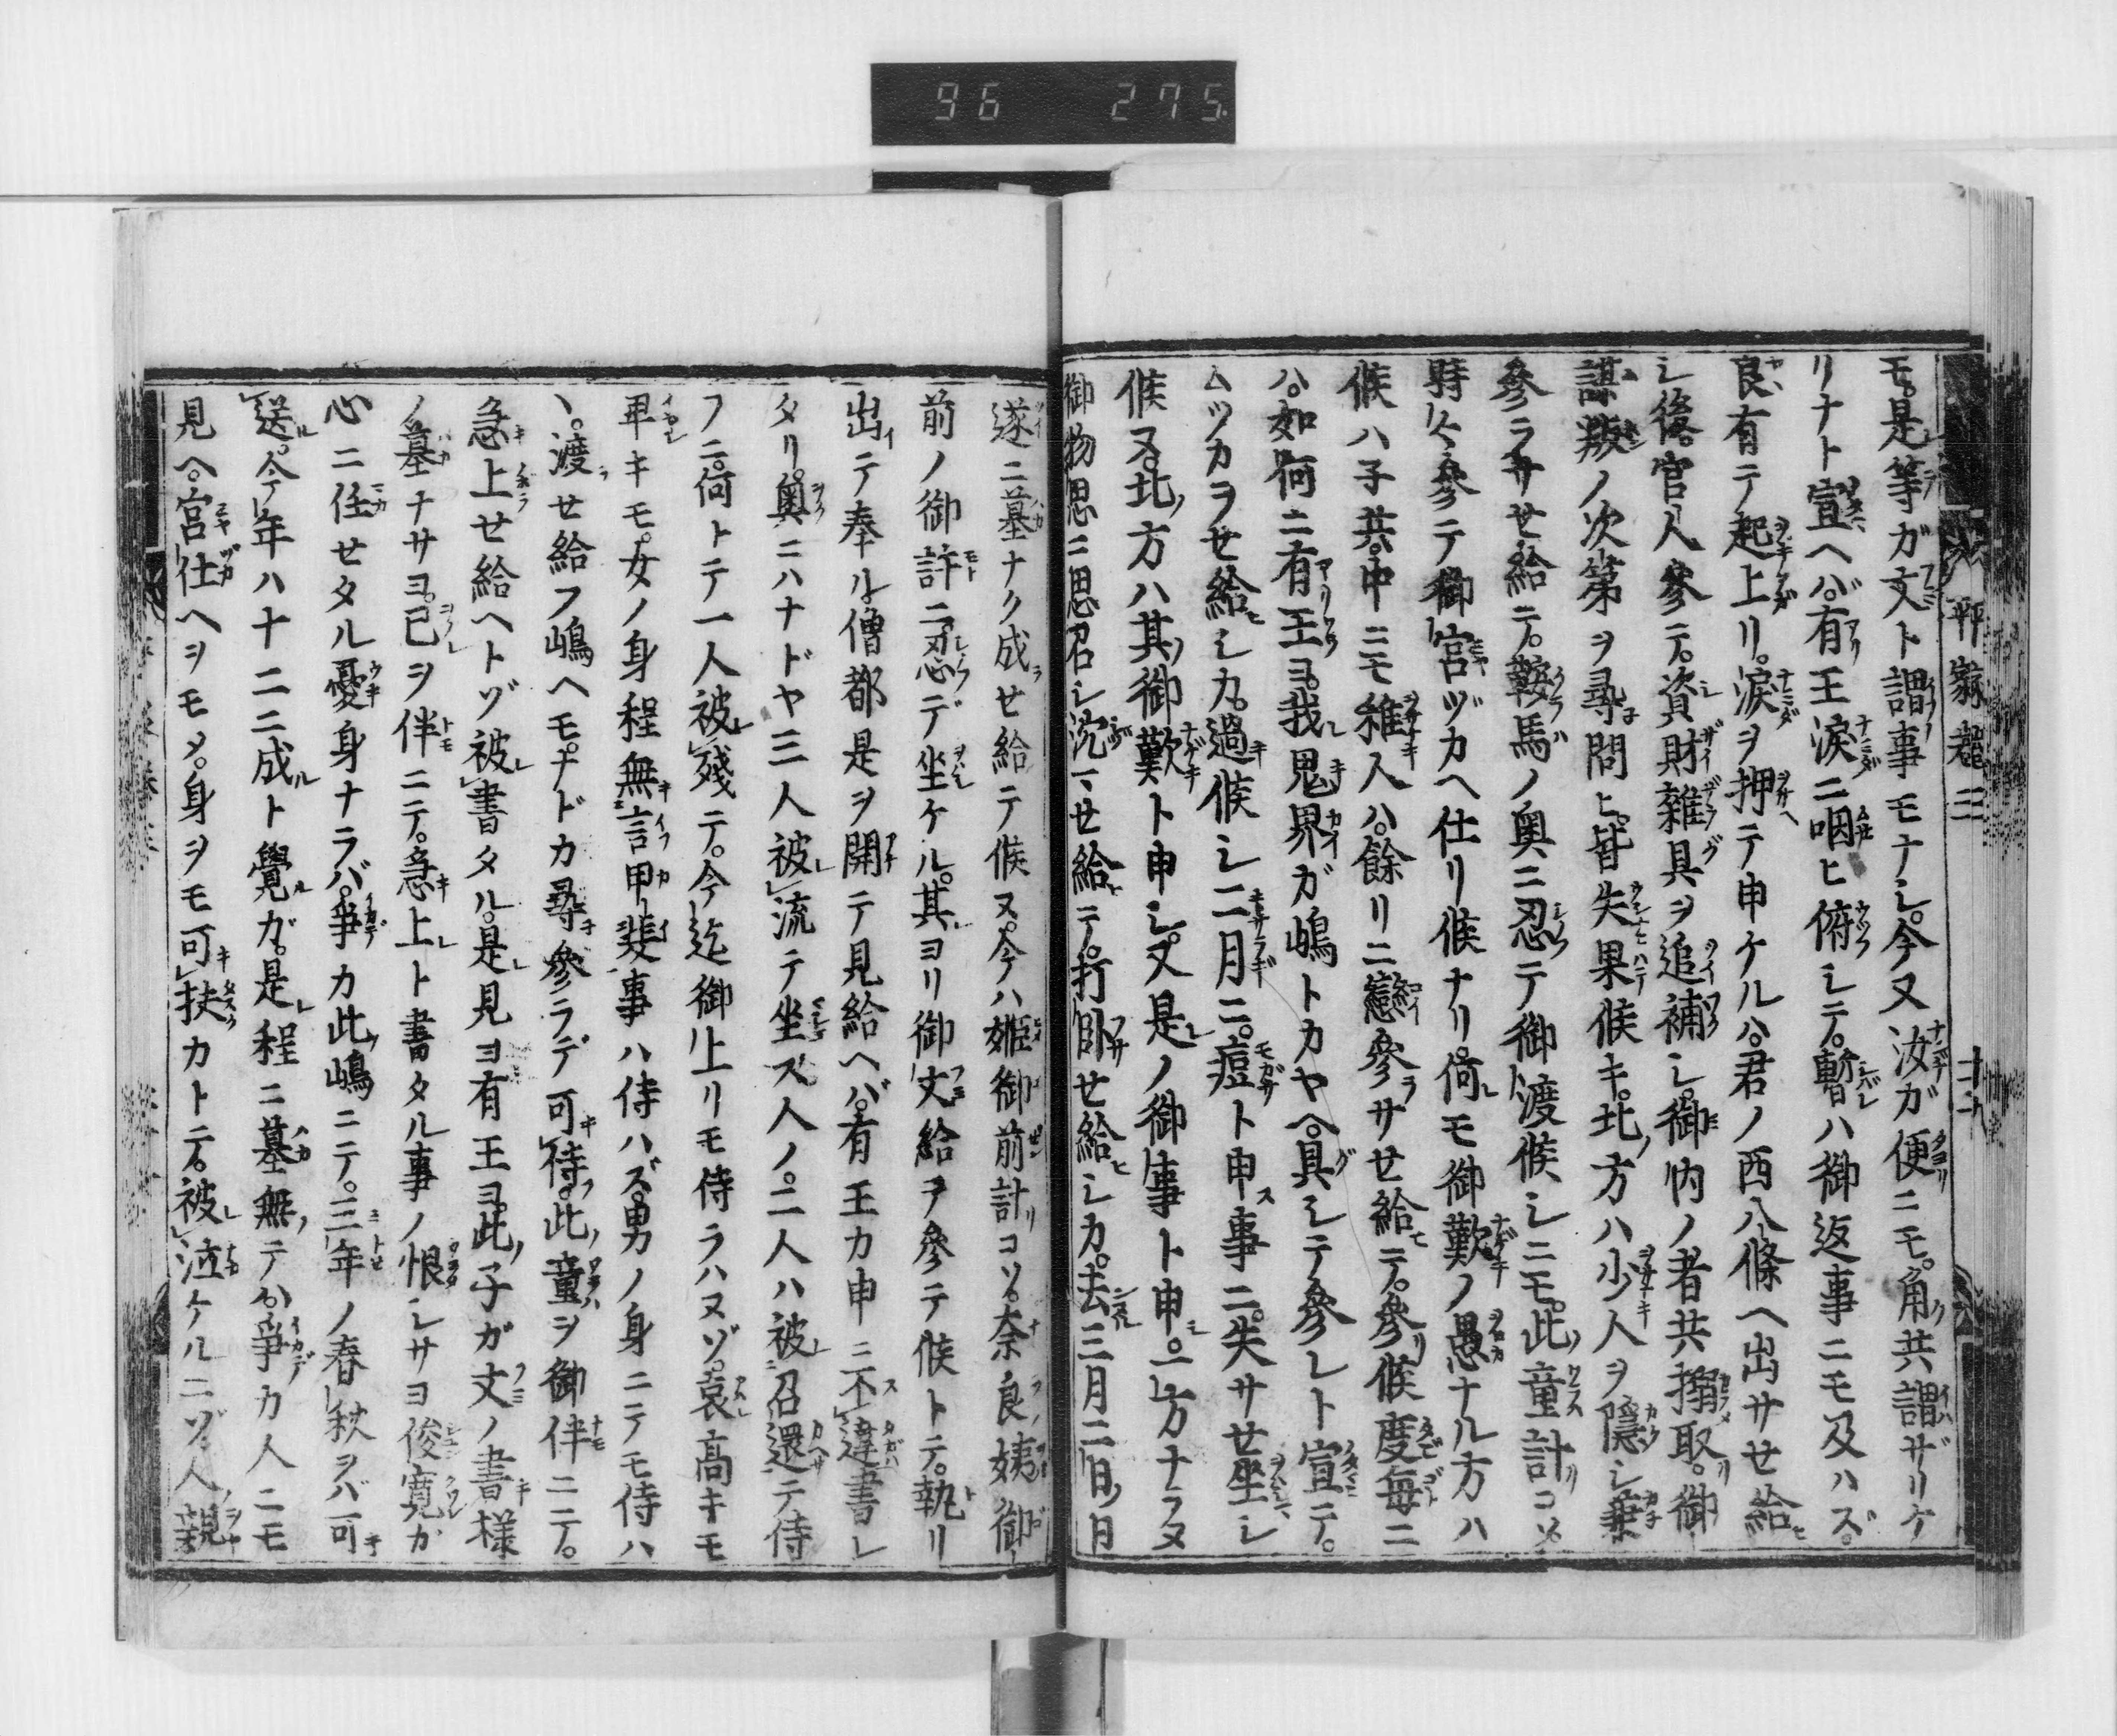 96 275
平家巻三
十九
モ。是等ガ文ト謂事モナシ。今又汝ガ便ニモ。角共謂ザリケ
リナト宣ヘバ。有王涙ニ咽ヒ俯シテ。暫ハ御返事ニモ及ハズ。
良有テ起上リ。涙ヲ押テ申ケルハ。君ノ西八條ヘ出サセ給
シ後。官人參テ。資財雜具ヲ追補シ。御内ノ者共搦取。御
謀叛ノ次第ヲ尋問ヒ。皆失果候キ。北方ハ少人ヲ隱シ兼
參ラサセ給テ。鞍馬ノ奥ニ忍テ御渡候シニモ。此童計コソ。
時々參テ御宮ヅカヘ仕リ候ナリ。何モ御歎ノ愚ナル方ハ
候ハ子共。中ニモ稚人ハ。餘リニ戀參ラサセ給テ。參候度毎ニ
ハ。如何ニ有王ヨ。我鬼界ガ嶋トカヤヘ。具シテ參レト宣テ。
ムツカラせ給シカ。過候シ二月ニ。痘ト申事ニ。失サせ坐シ
候ヌ。北方ハ其御歎ト申シ。又是ノ御事ト申。一方ナラヌ
御物思ニ思召シ沈マせ給テ。打臥せ給シカ。去三月二日ノ日
遂ニ墓ナク成せ給テ候ヌ。今ハ姫御前計コソ。奈良ノ姨御
前ノ御許ニ忍デ坐ケル。其ヨリ御文給ヲ參テ候トテ。執リ
出テ奉ル。僧都是ヲ開テ見給ヘバ。有王カ申ニ不違書レ
タリ。奥ニハナドヤ三人被流テ坐ス人ノ。二人ハ被召還テ侍
フニ。何トテ一人被殘テ。今迄御上リモ侍ラハヌゾ。哀高キモ
卑キモ。女ノ身程無言甲斐事ハ侍ハズ。男ノ身ニテモ侍ハ
ヽ。渡せ給フ嶋ヘモ。ナドカ尋參ラデ可侍。此童ヲ御伴ニテ。
急上せ給ヘトゾ被書タル。是見ヨ有王ヨ。此子ガ文ノ書様
ノ墓ナサヨ。己ヲ伴ニテ。急上レト書タル事ノ恨シサヨ俊寛カ
心ニ任せタル憂身ナラバ。爭カ此嶋ニテ。三年ノ春秋ヲバ可
送。今年ハ十二ニ成ト覺ガ。是程ニ墓無テハ。爭カ人ニモ
見ヘ。宮仕ヘヲモメ。身ヲモ可扶カトテ。被泣ケルニゾ。人ノ親